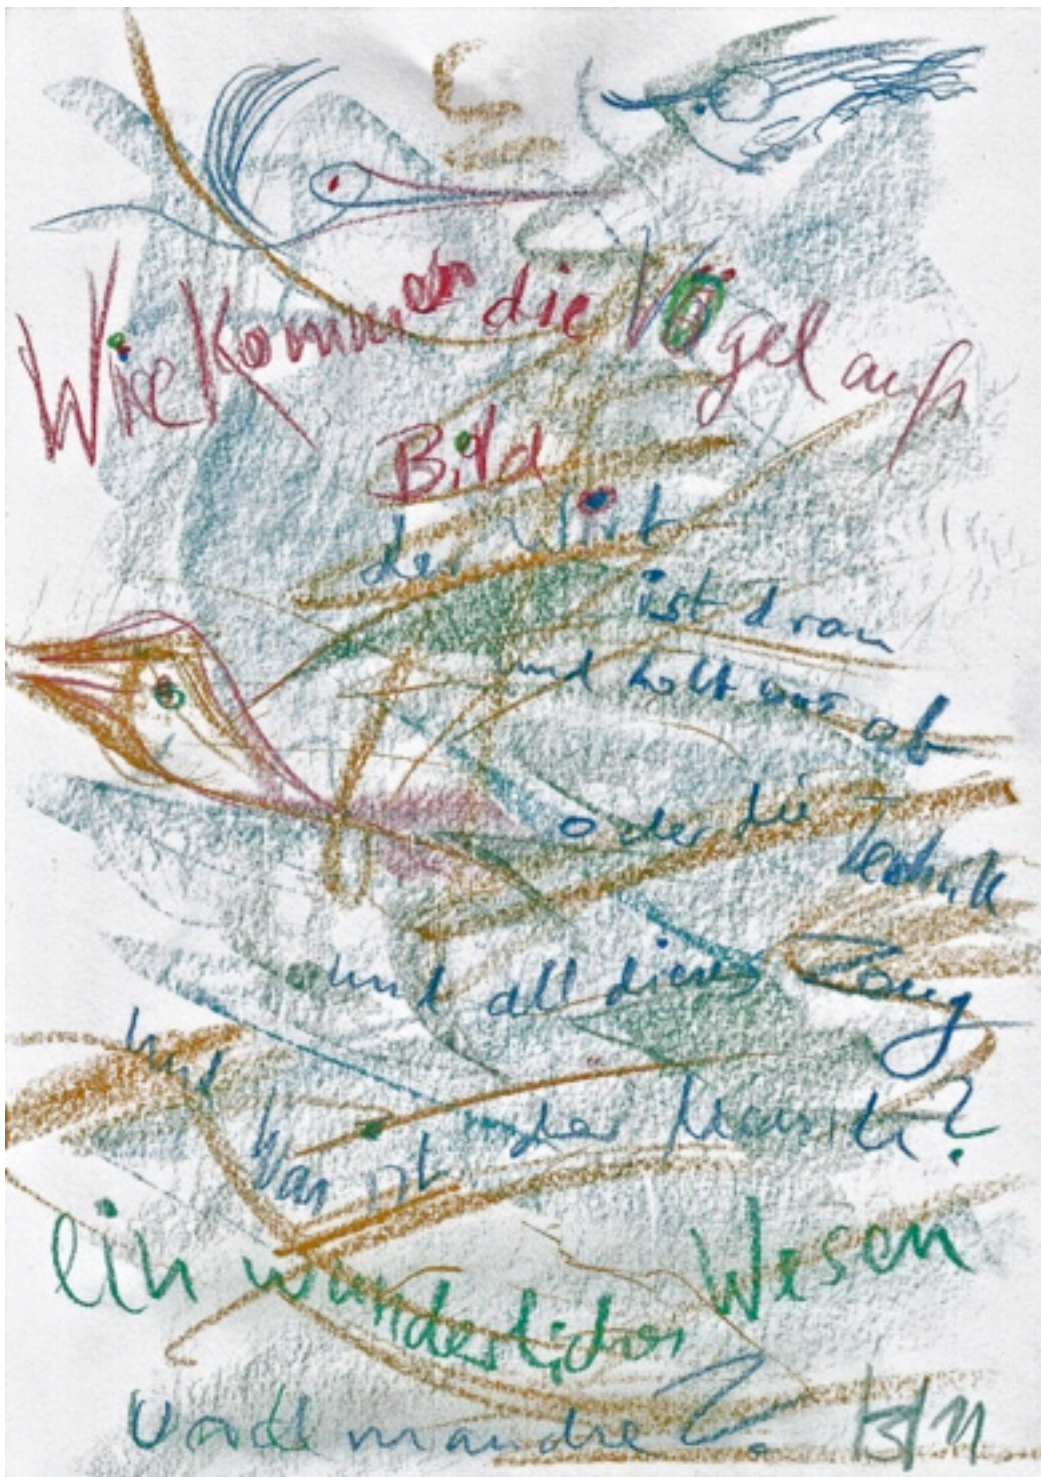 Wie kommen die Vögel aufs
Bild
der Wirt
ist dran
und holt uns ab
oder die Technik
und all dieses Zeug
und
was ist der Mensch?
ein wunderliches Wesen
und manche?